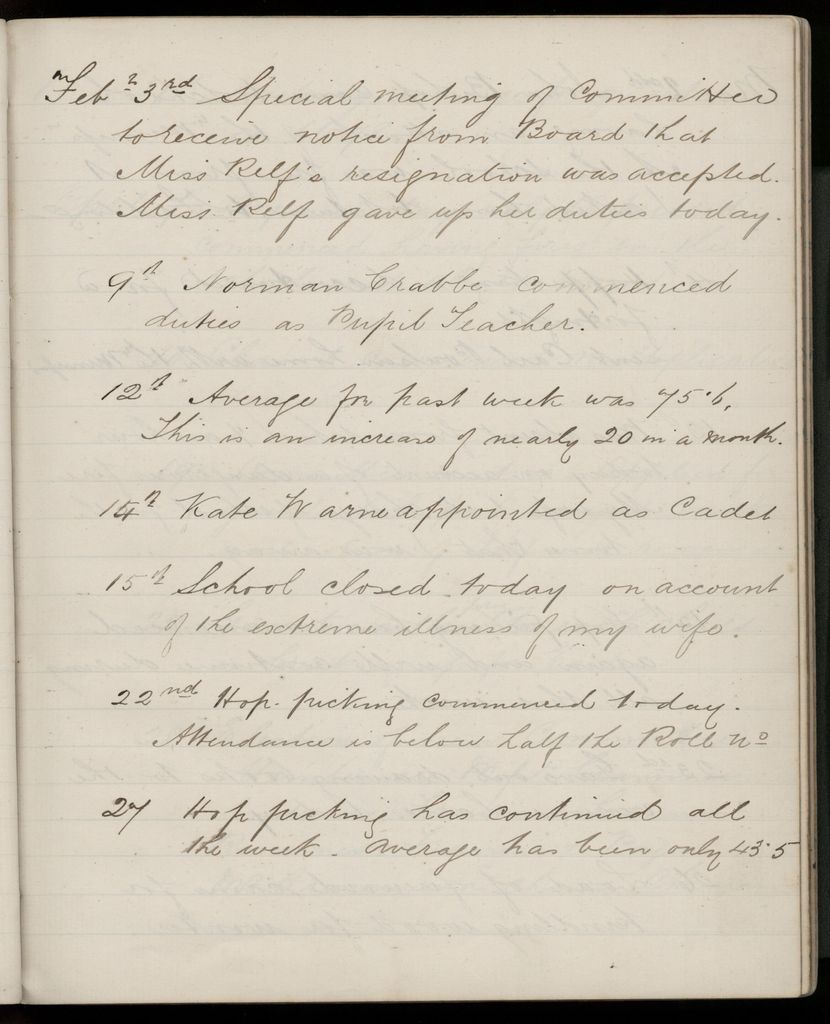 Feby 3rd Special meeting of Committee
to receive notice from Board that
Miss Relf's resignation was accepted.
Miss Relf gave up her duties today.
9th Norman Crabbe commenced
duties as Pupil Teacher.
12th Average for past week was 75.6.
This is an increase of nearly 20 in a month.
14th Kate Warne appointed as Cadet
15th School closed today on account
of the extreme illness of my wife.
22nd Hop-picking commenced today.
Attendance is below half the Roll No
27 Hop picking has continued all
the week. Average has been only 43.5